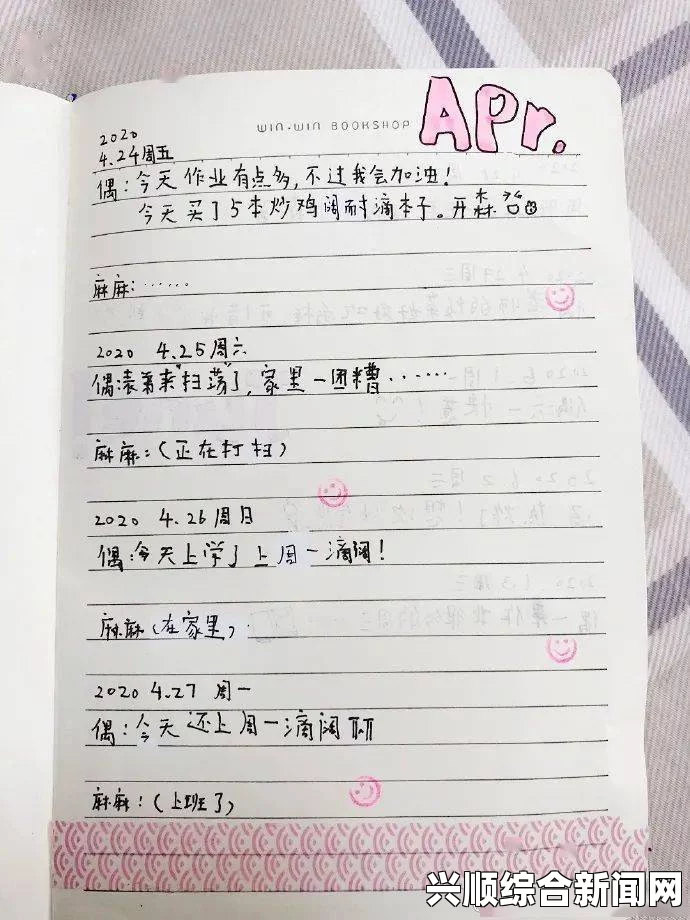 WIN·WIN BOOKSHOP
APr.
2020
4.24周五
偶:今天作业有点多,不过我会加油!
今天买了5本炒鸡阔耐滴本子。开森
麻麻:······
2020 4.25周六
偶表弟来"扫荡"了,家里一团糟······
麻麻:(正在打扫)
2020 4.26周日
偶:今天上学了上周一滴阔!
麻麻(在家里)
2020 4.27 周一
偶:今天还上周一滴阔
麻麻:(上班了)
兴顺综合新闻网